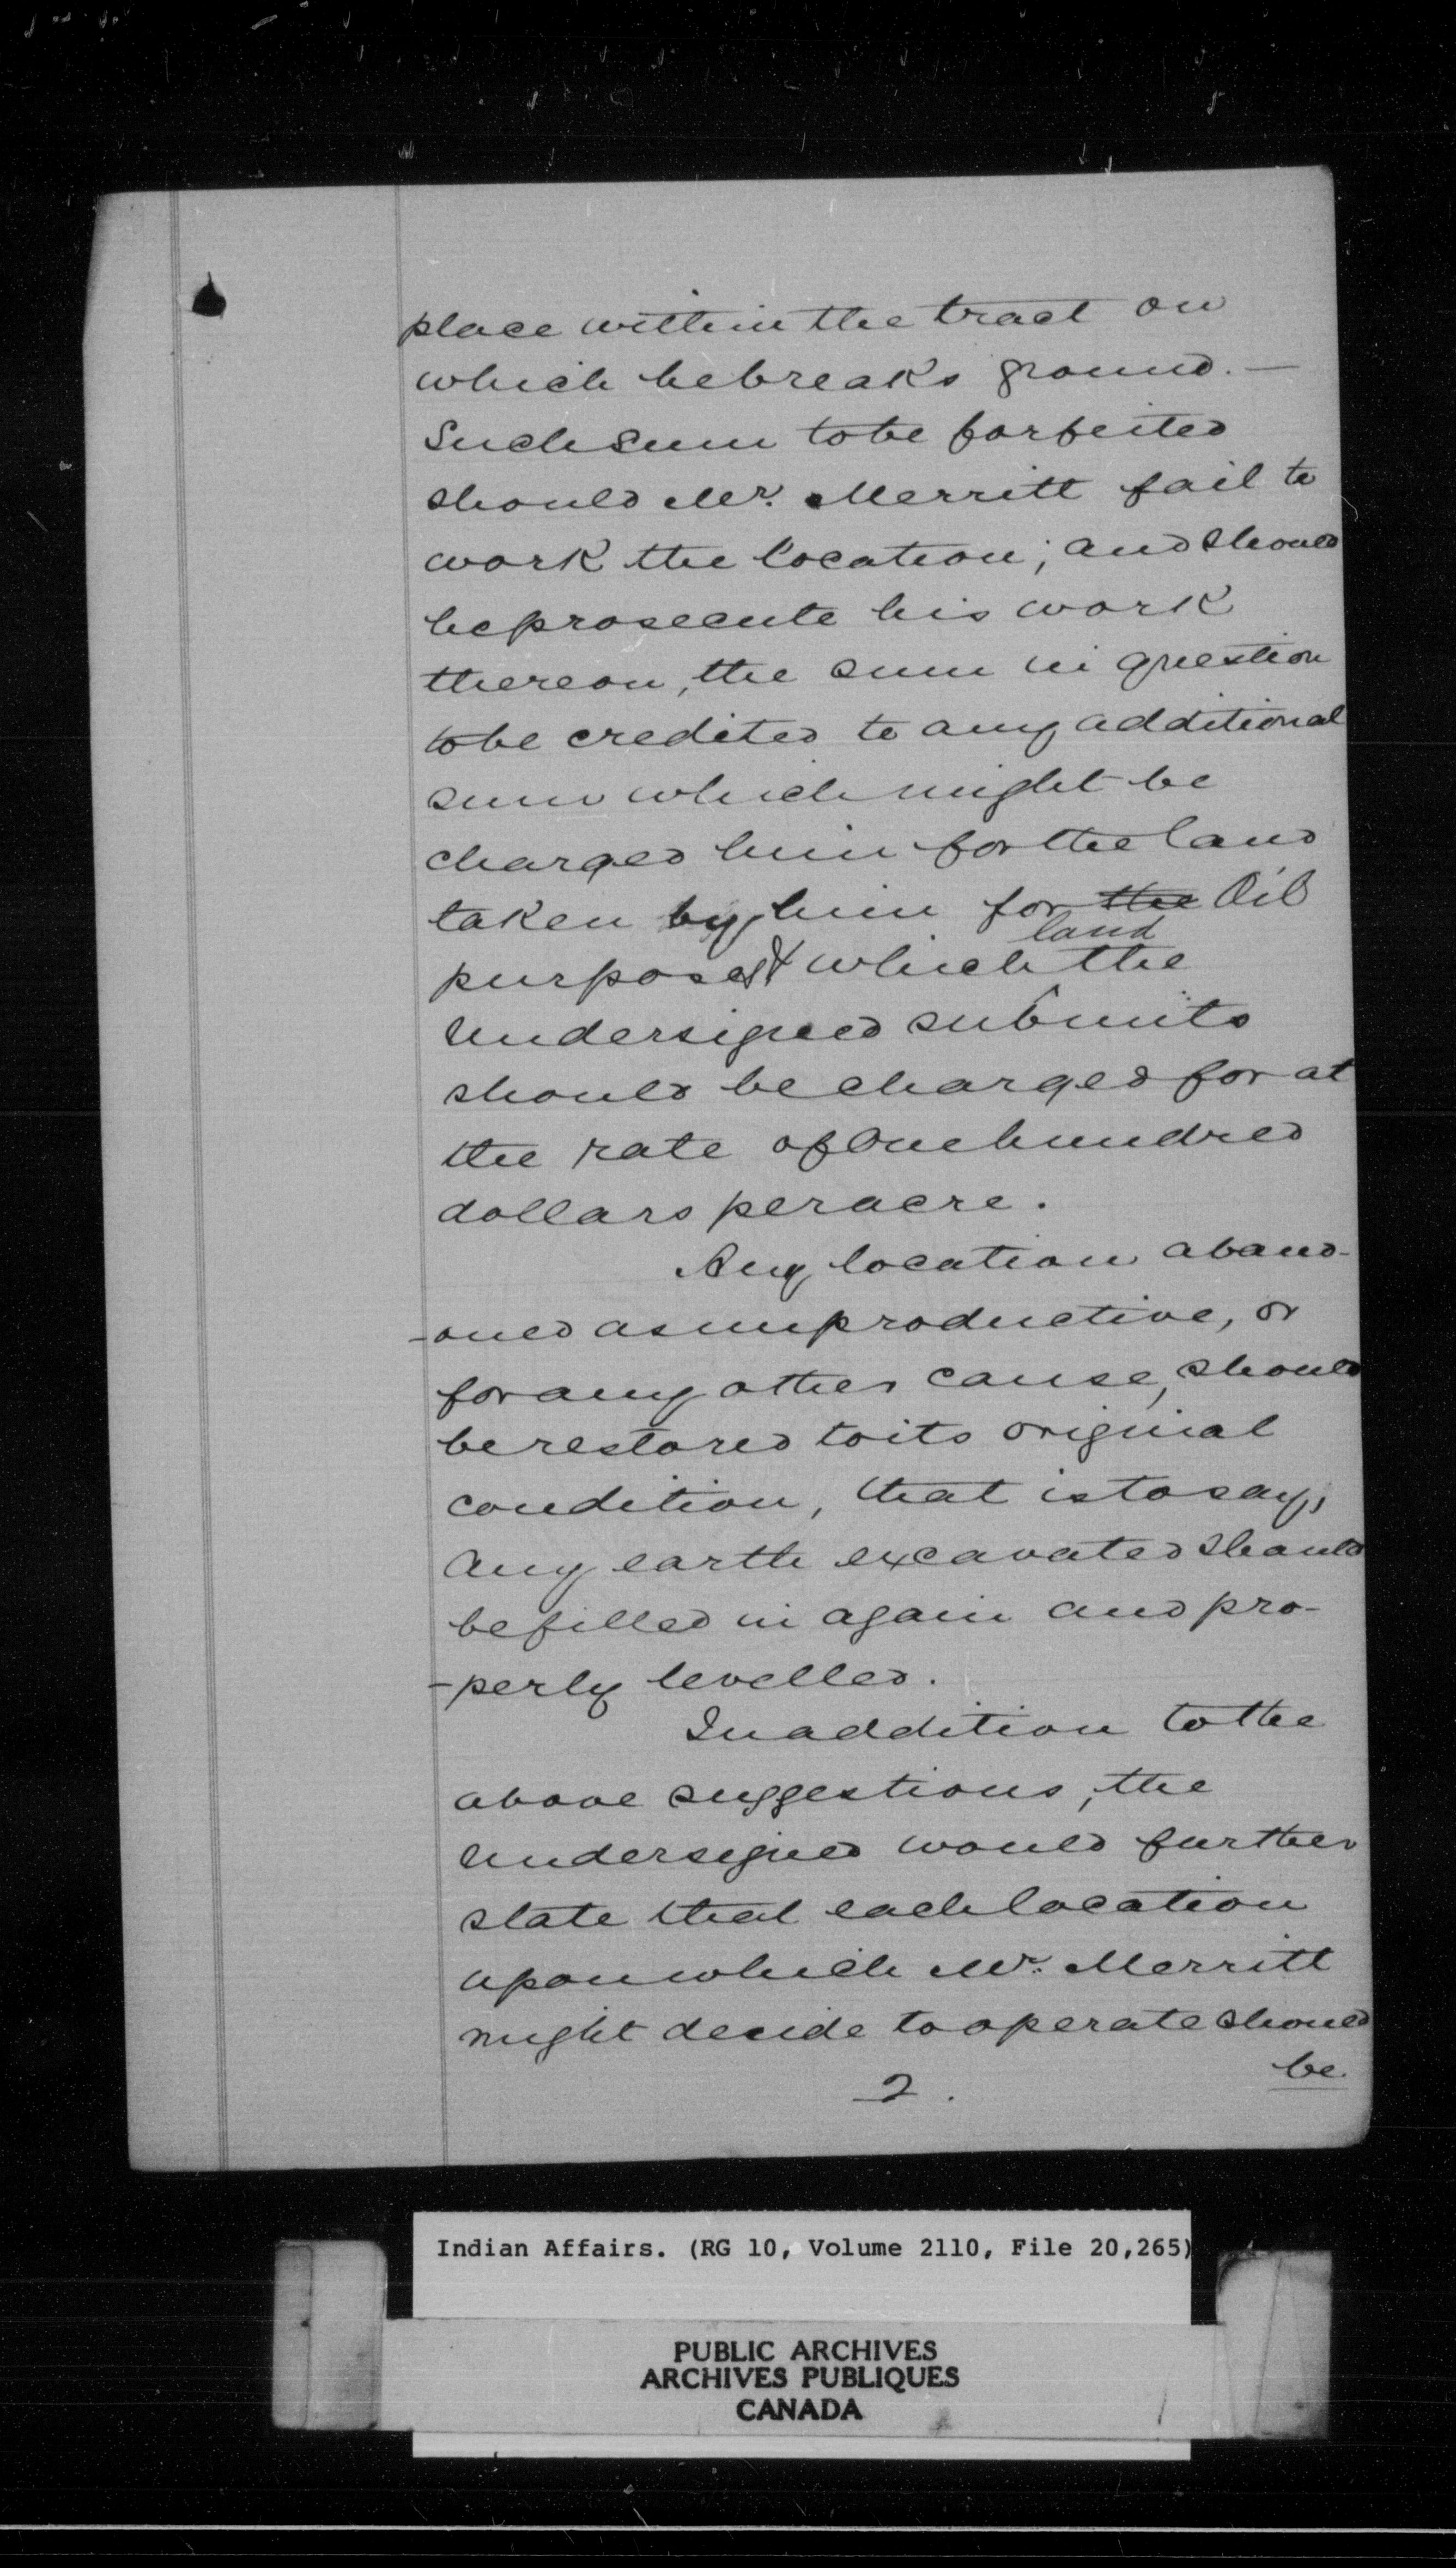 place within the tract on
which he breaks ground. —
Such sum to be forfeited
should Mr. Merritt fail to
work the location; and should
he prosecute his work
thereon, the sum in question
to be credited to any additional
sum which might be
charged him for the land
taken by him for ~~the~~ Oil
purposes & which land the
Undersigned submits
should be charged for at
the rate of One hundred
dollars per acre.
Any location aband-
-oned as unproductive, or
for any other cause, should
be restored to its original
condition, that is to say,
any earth excavated should
be filled in again and pro-
-perly levelled.
In addition to the
above suggestions, the
Undersigned would further
state that each location
upon which Mr. Merritt
might decide to operate should
be
2.
Indian Affairs. (RG 10, Volume 2110, File 20,265)
PUBLIC ARCHIVES
ARCHIVES PUBLIQUES
CANADA